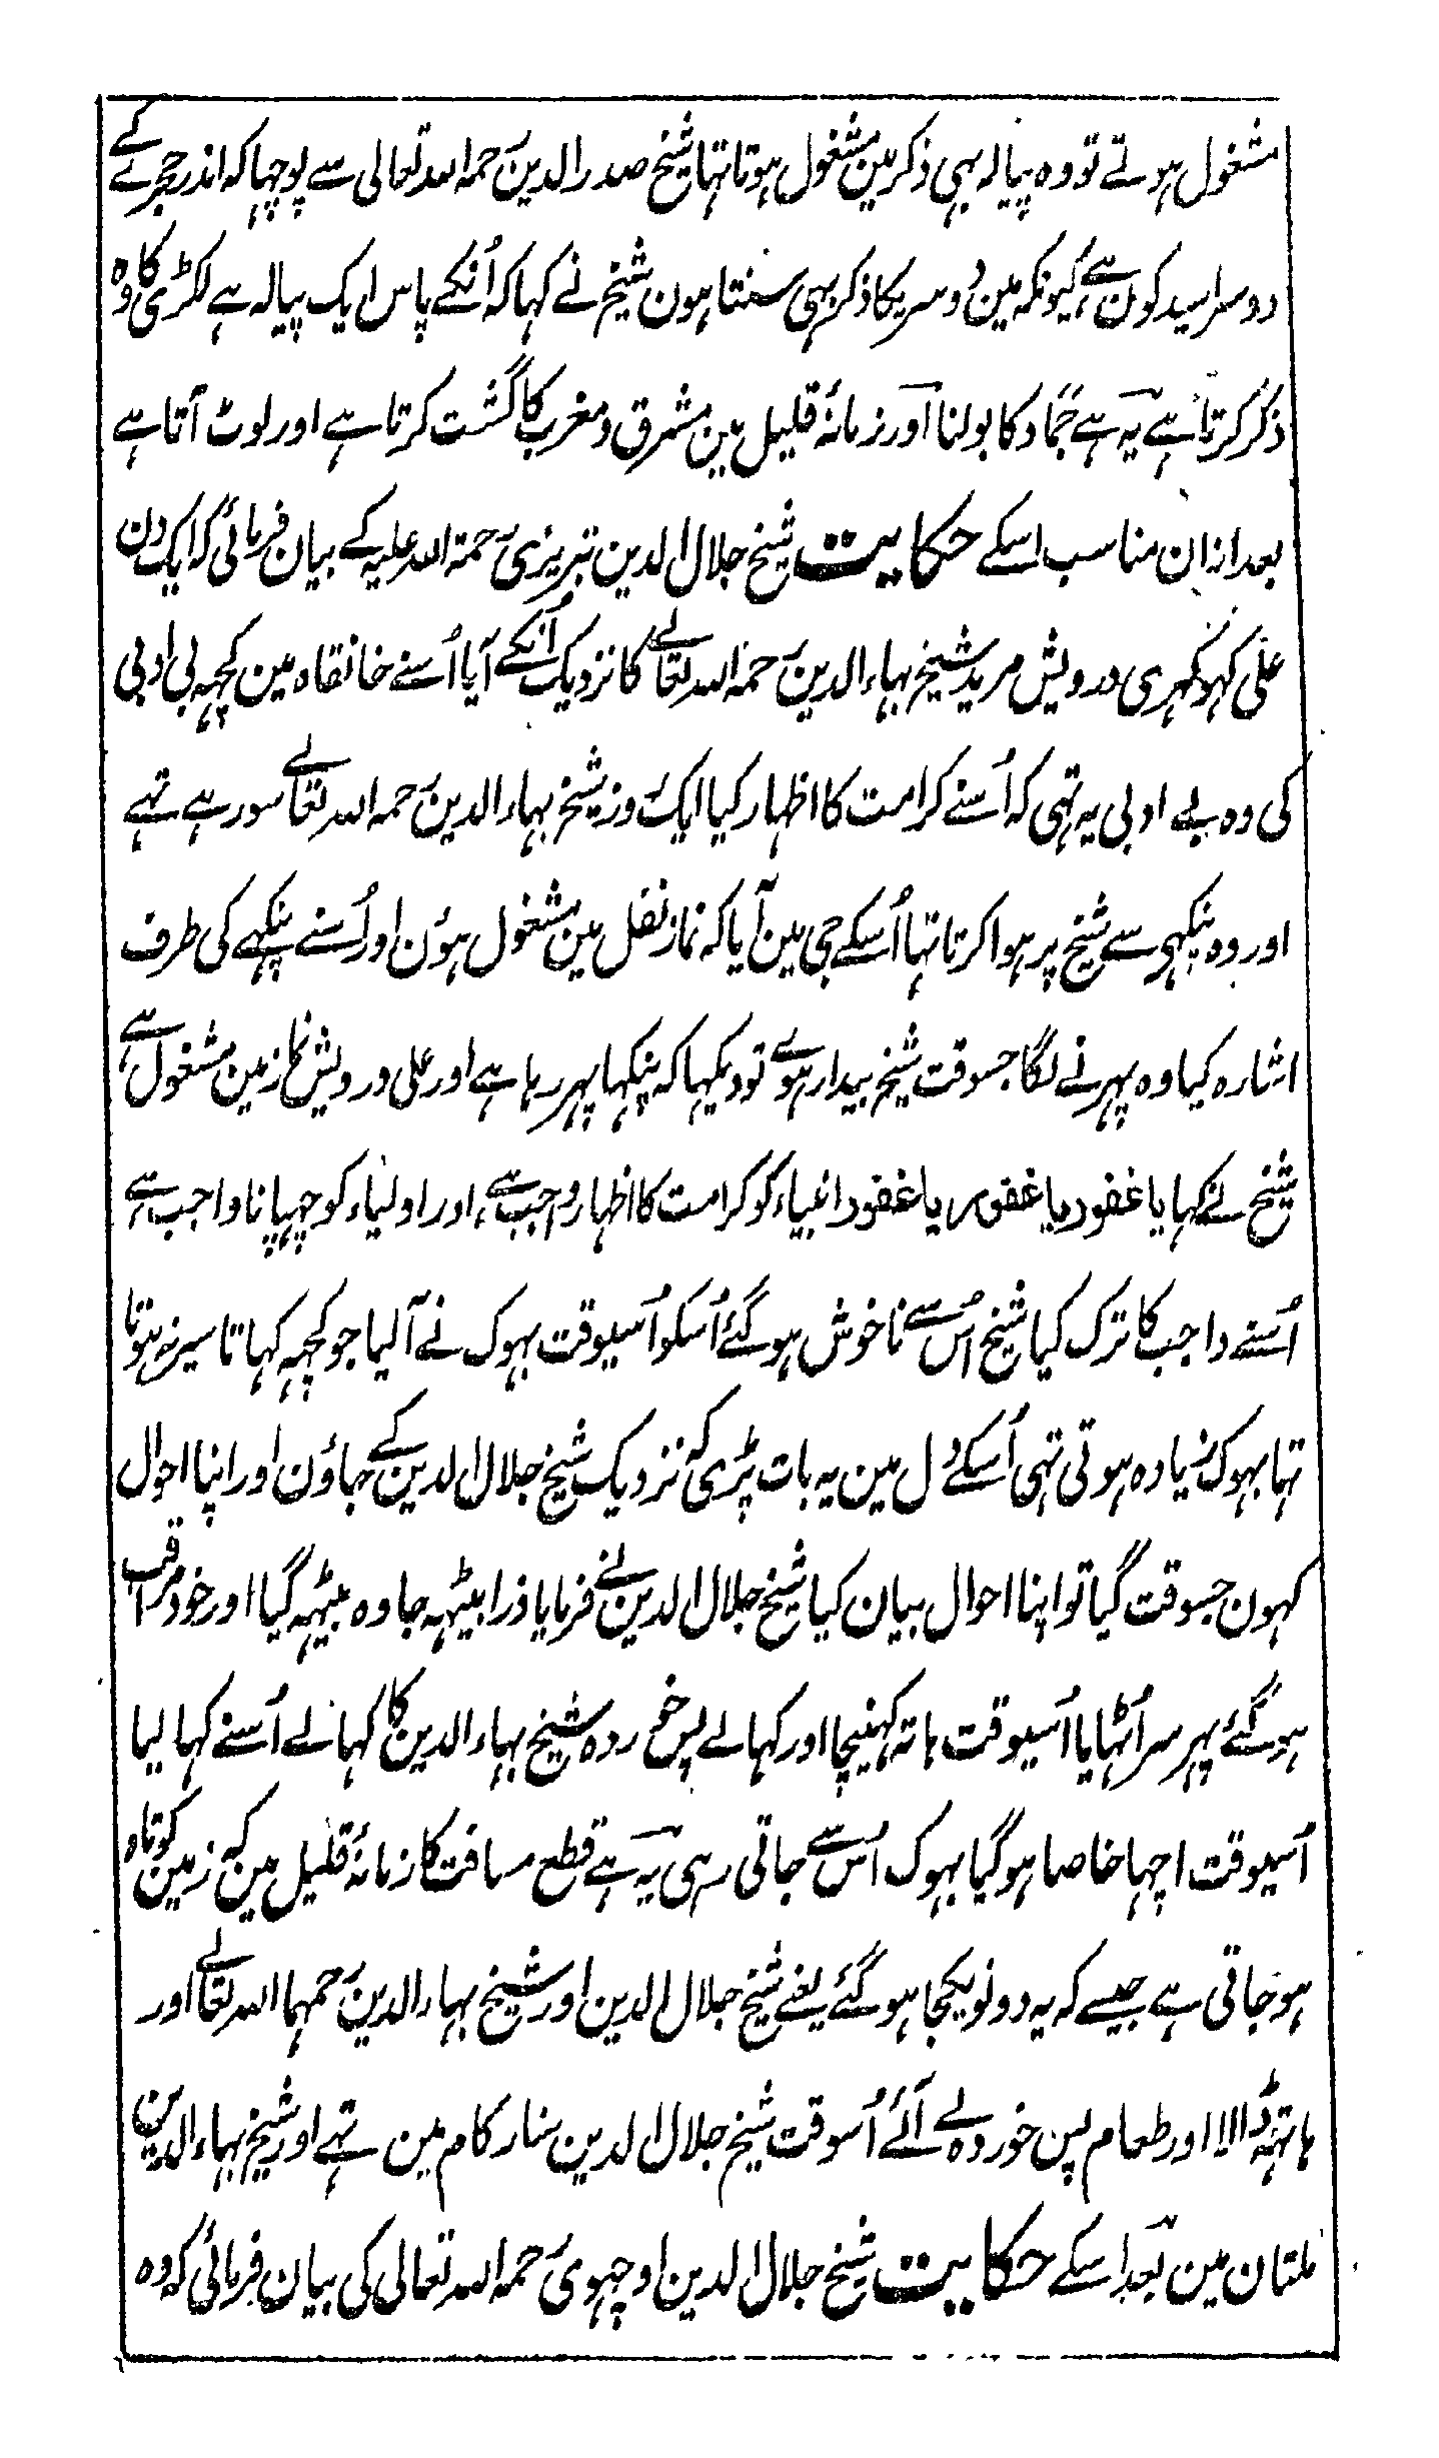 مشغول ہوتے تو وہ پیالہ بہی ذکر مین مشغول ہوتا تہا شیخ صدر الدین رحمہ اللہ تعالی سے پوچہا کہ اندر حجرے کے
دوسرا سید کون ہے کیونکہ مین دوسریکا ذکر بہی سنتا ہون شیخ نے کہا کہ اُنکے پاس ایک پیالہ ہے لکڑی کا وہ
ذکر کرتا ہے یہ ہے جماد کا بولنا اور زمانۂ قلیل مین مشرق و مغرب کا گشت کرتا ہے اور لوٹ آتا ہے
بعد ازان مناسب اسکے حکایت شیخ جلال الدین تبریزی رحمۃ اللہ علیہ کے بیان فرمائی کہ ایک دن
علی کہوکہری درویش مرید شیخ بہاء الدین رحمۃ اللہ تعالے کا نزدیک اُنکے آیا اُسنے خانقاہ مین کچہہ بی ادبی
کی وہ بے ادبی یہ تہی کہ اُسنے کرامت کا اظہار کیا ایک روز شیخ بہاء الدین رحمہ اللہ تعالے سو رہے تہے
اور وہ پنکہی سے شیخ پر ہوا کرتا تہا اُسکے جی مین آیا کہ نماز نفل مین مشغول ہوُن اور اُسنے پنکہے کی طرف
اشارہ کیا وہ پہرنے لگا جسوقت شیخ بیدار ہوے تو دیکہا کہ پنکہا پہر رہا ہے اور علی درویش نماز مین مشغول ہے
شیخ نے کہا یا غفور یا غفور یا غفور انبیاء کو کرامت کا اظہار واجب ہے اور اولیاء کو چہپانا واجب ہے
اُسنے واجب کا ترک کیا شیخ اُس سے ناخوش ہو گئے اُسکو اُسیوقت بہوک نے آ لیا جو کچہہ کہاتا سیر نہوتا
تہا بہوک زیادہ ہوتی تہی اُسکے دل مین یہ بات پڑی کہ نزدیک شیخ جلال الدین کے جاؤن اور اپنا احوال
کہون جسوقت گیا تو اپنا احوال بیان کیا شیخ جلال الدین نے فرمایا ذرا بیٹہہ جا وہ بیٹہہ گیا اور خود مراقب
ہو گئے پہر سر اُٹہایا اُسیوقت ہاتہ کہینچا اور کہا لے پس خوردہ شیخ بہاء الدین کا کہا لے اُسنے کہا لیا
اُسیوقت اچہا خاصا ہو گیا بہوک اُس سے جاتی رہی یہ ہے قطع مسافت کا زمانۂ قلیل مین کہ زمین کوتاہ
ہو جاتی ہے جیسے کہ یہ دونو یکجا ہو گئے یعنے شیخ جلال الدین اور شیخ بہاء الدین رحمہما اللہ تعالے اور
ہاتہہ ڈالا اور طعام پس خوردہ لے آئے اُسوقت شیخ جلال الدین سنار کام مین تہے اور شیخ بہاء الدین
ملتان مین بعد اسکے حکایت شیخ جلال الدین اوچہوی رحمہ اللہ تعالی کی بیان فرمائی کہ وہ